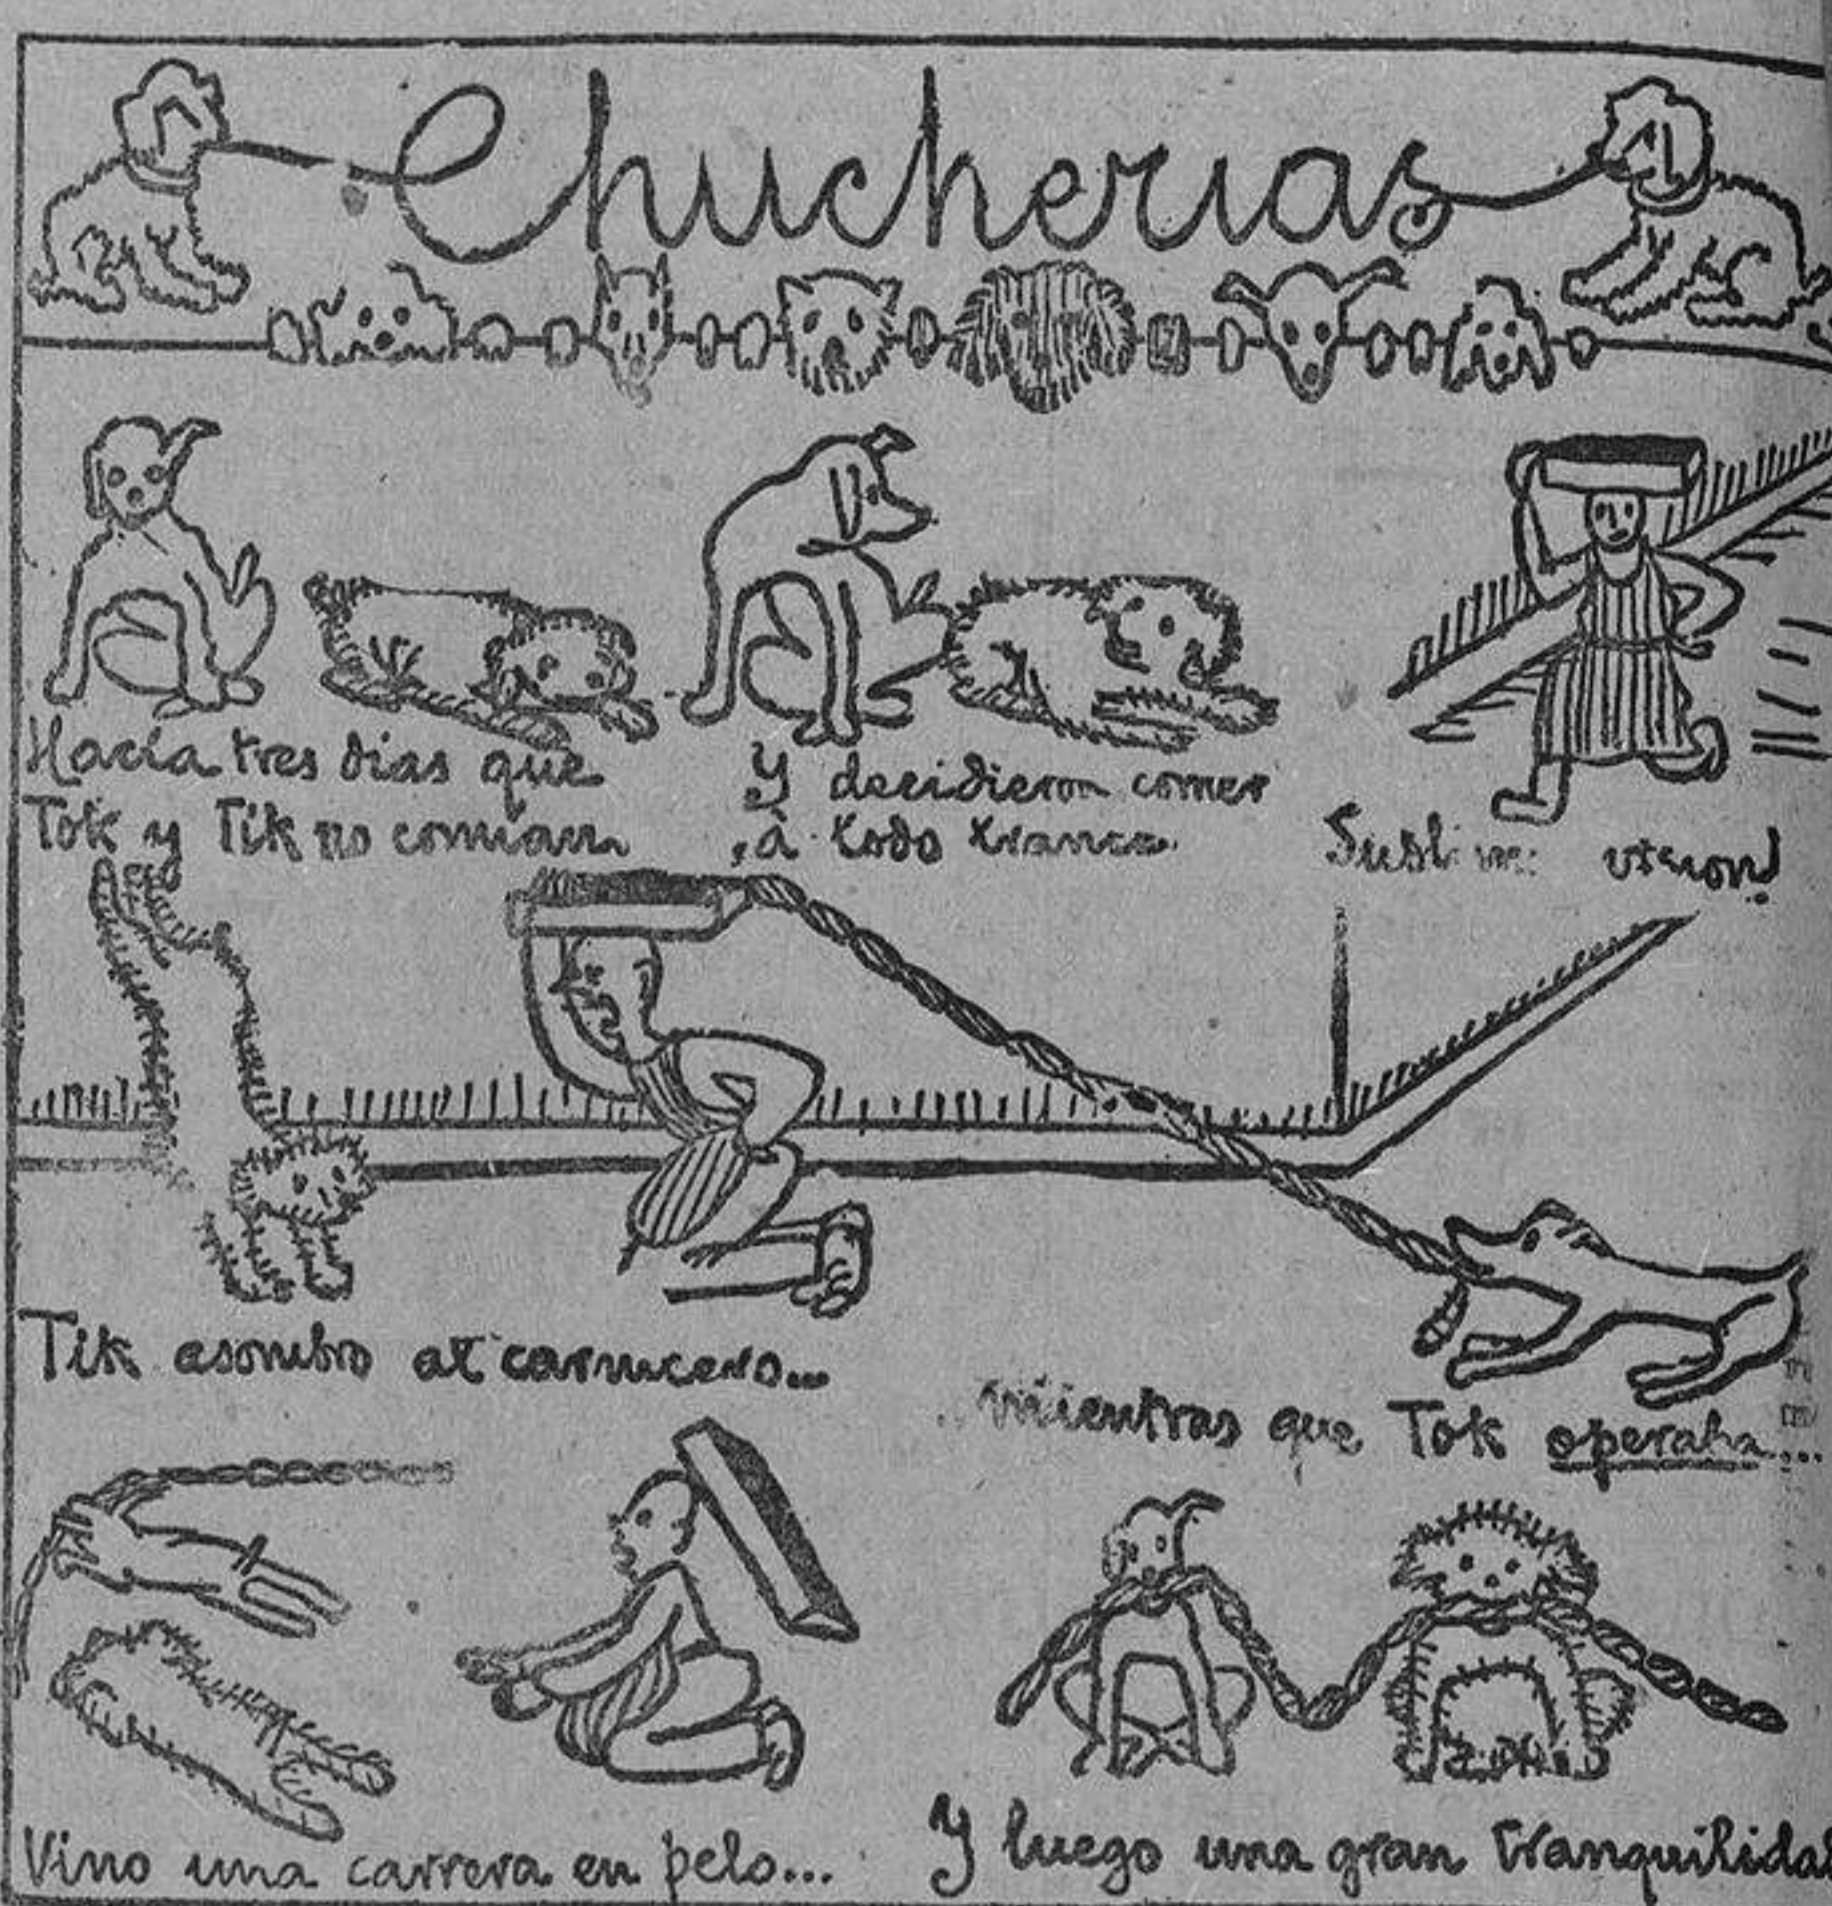 Chucherias
Hacía tres dias que
Tok y Tik no comían
Y decidieron comer
à todo trance.
Sublime vision!
Tik asombro al carnicero...
...mientras que Tok operaba....
Vino una carrera en pelo...
Y luego una gran tranquilidad